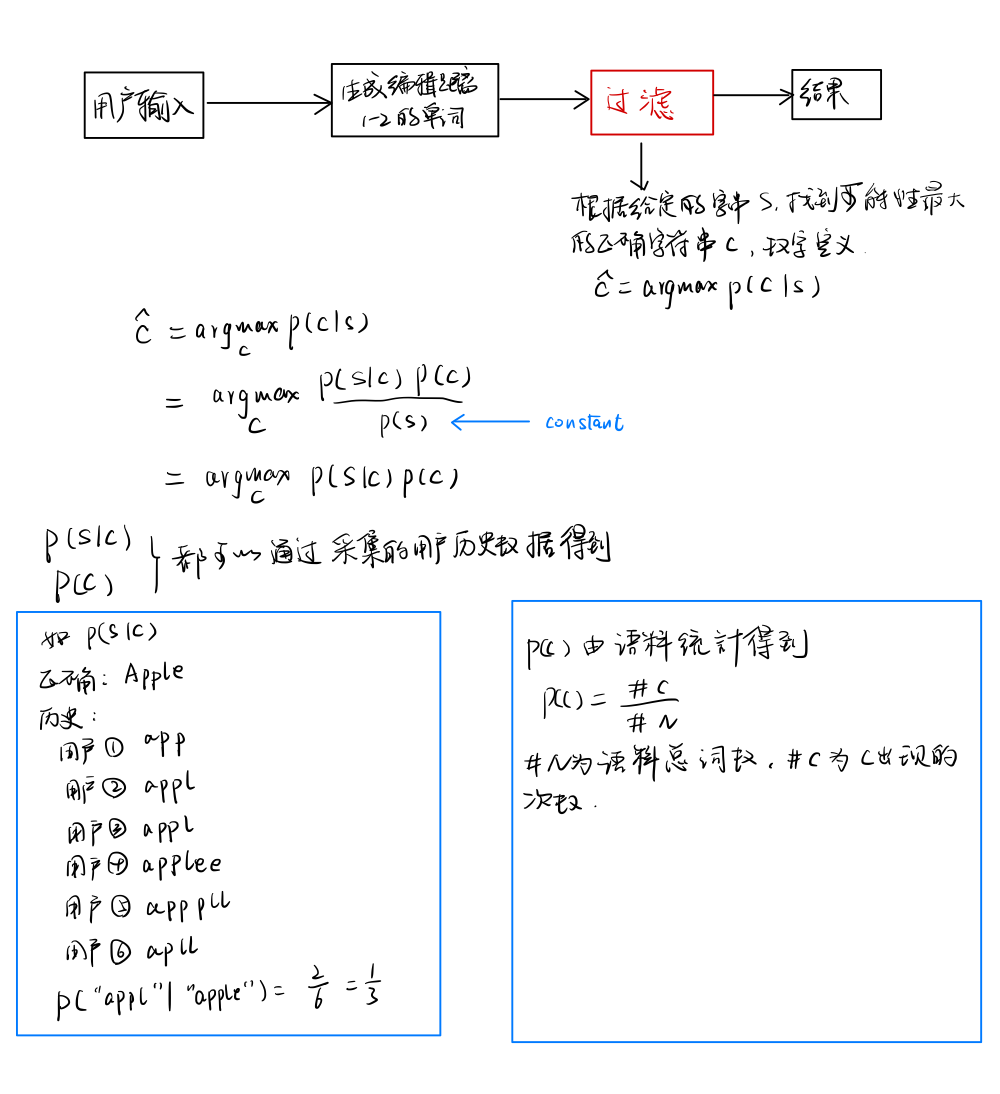 用户输入
生成编辑距离
1-2的单词
过滤
结果
根据给定的字串 S, 找到可能性最大
的正确字符串 C, 数字定义.
ĉ = argmax p(c|s)
ĉ = argmax p(c|s)
c
= argmax p(s|c) p(c)
c
p(s)
constant
= argmax p(s|c) p(c)
c
p(s|c)
p(c)
都可以通过采集的用户历史数据得到
如 p(s|c)
正确: Apple
历史:
用户① app
用户② appl
用户③ appl
用户④ applee
用户⑤ apppll
用户⑥ apll
p("appl"|"apple") = 2/6 = 1/3
p(c) 由语料统计得到
p(c) = #C / #N
#N为语料总词数, #C为C出现的
次数.